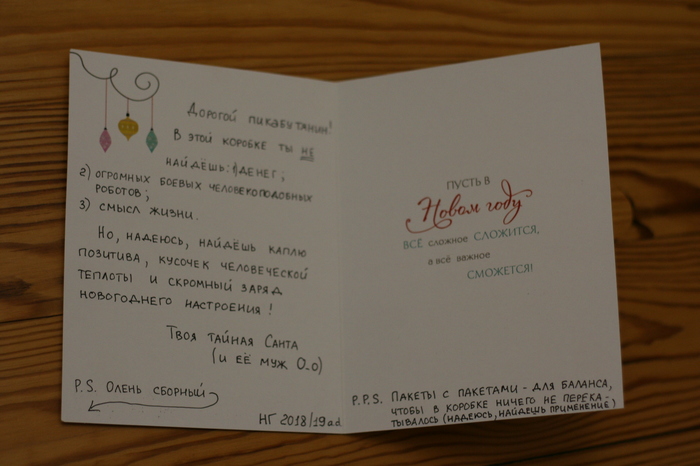 Дорогой пикабутянин!
В этой коробке ты не
найдёшь: 1) денег;
2) огромных боевых человекоподобных
роботов;
3) смысл жизни.
Но, надеюсь, найдёшь каплю
позитива, кусочек человеческой
теплоты и скромный заряд
новогоднего настроения!
Твоя тайная Санта
(и её муж O.o)
P.S. Олень сборный
НГ 2018/19 ad
ПУСТЬ В
Новом году
ВСЁ сложное СЛОЖИТСЯ,
а всё важное
СМОЖЕТСЯ!
P.P.S. Пакеты с пакетами - для баланса,
чтобы в коробке ничего не перека-
тывалось (надеюсь, найдёшь применение)